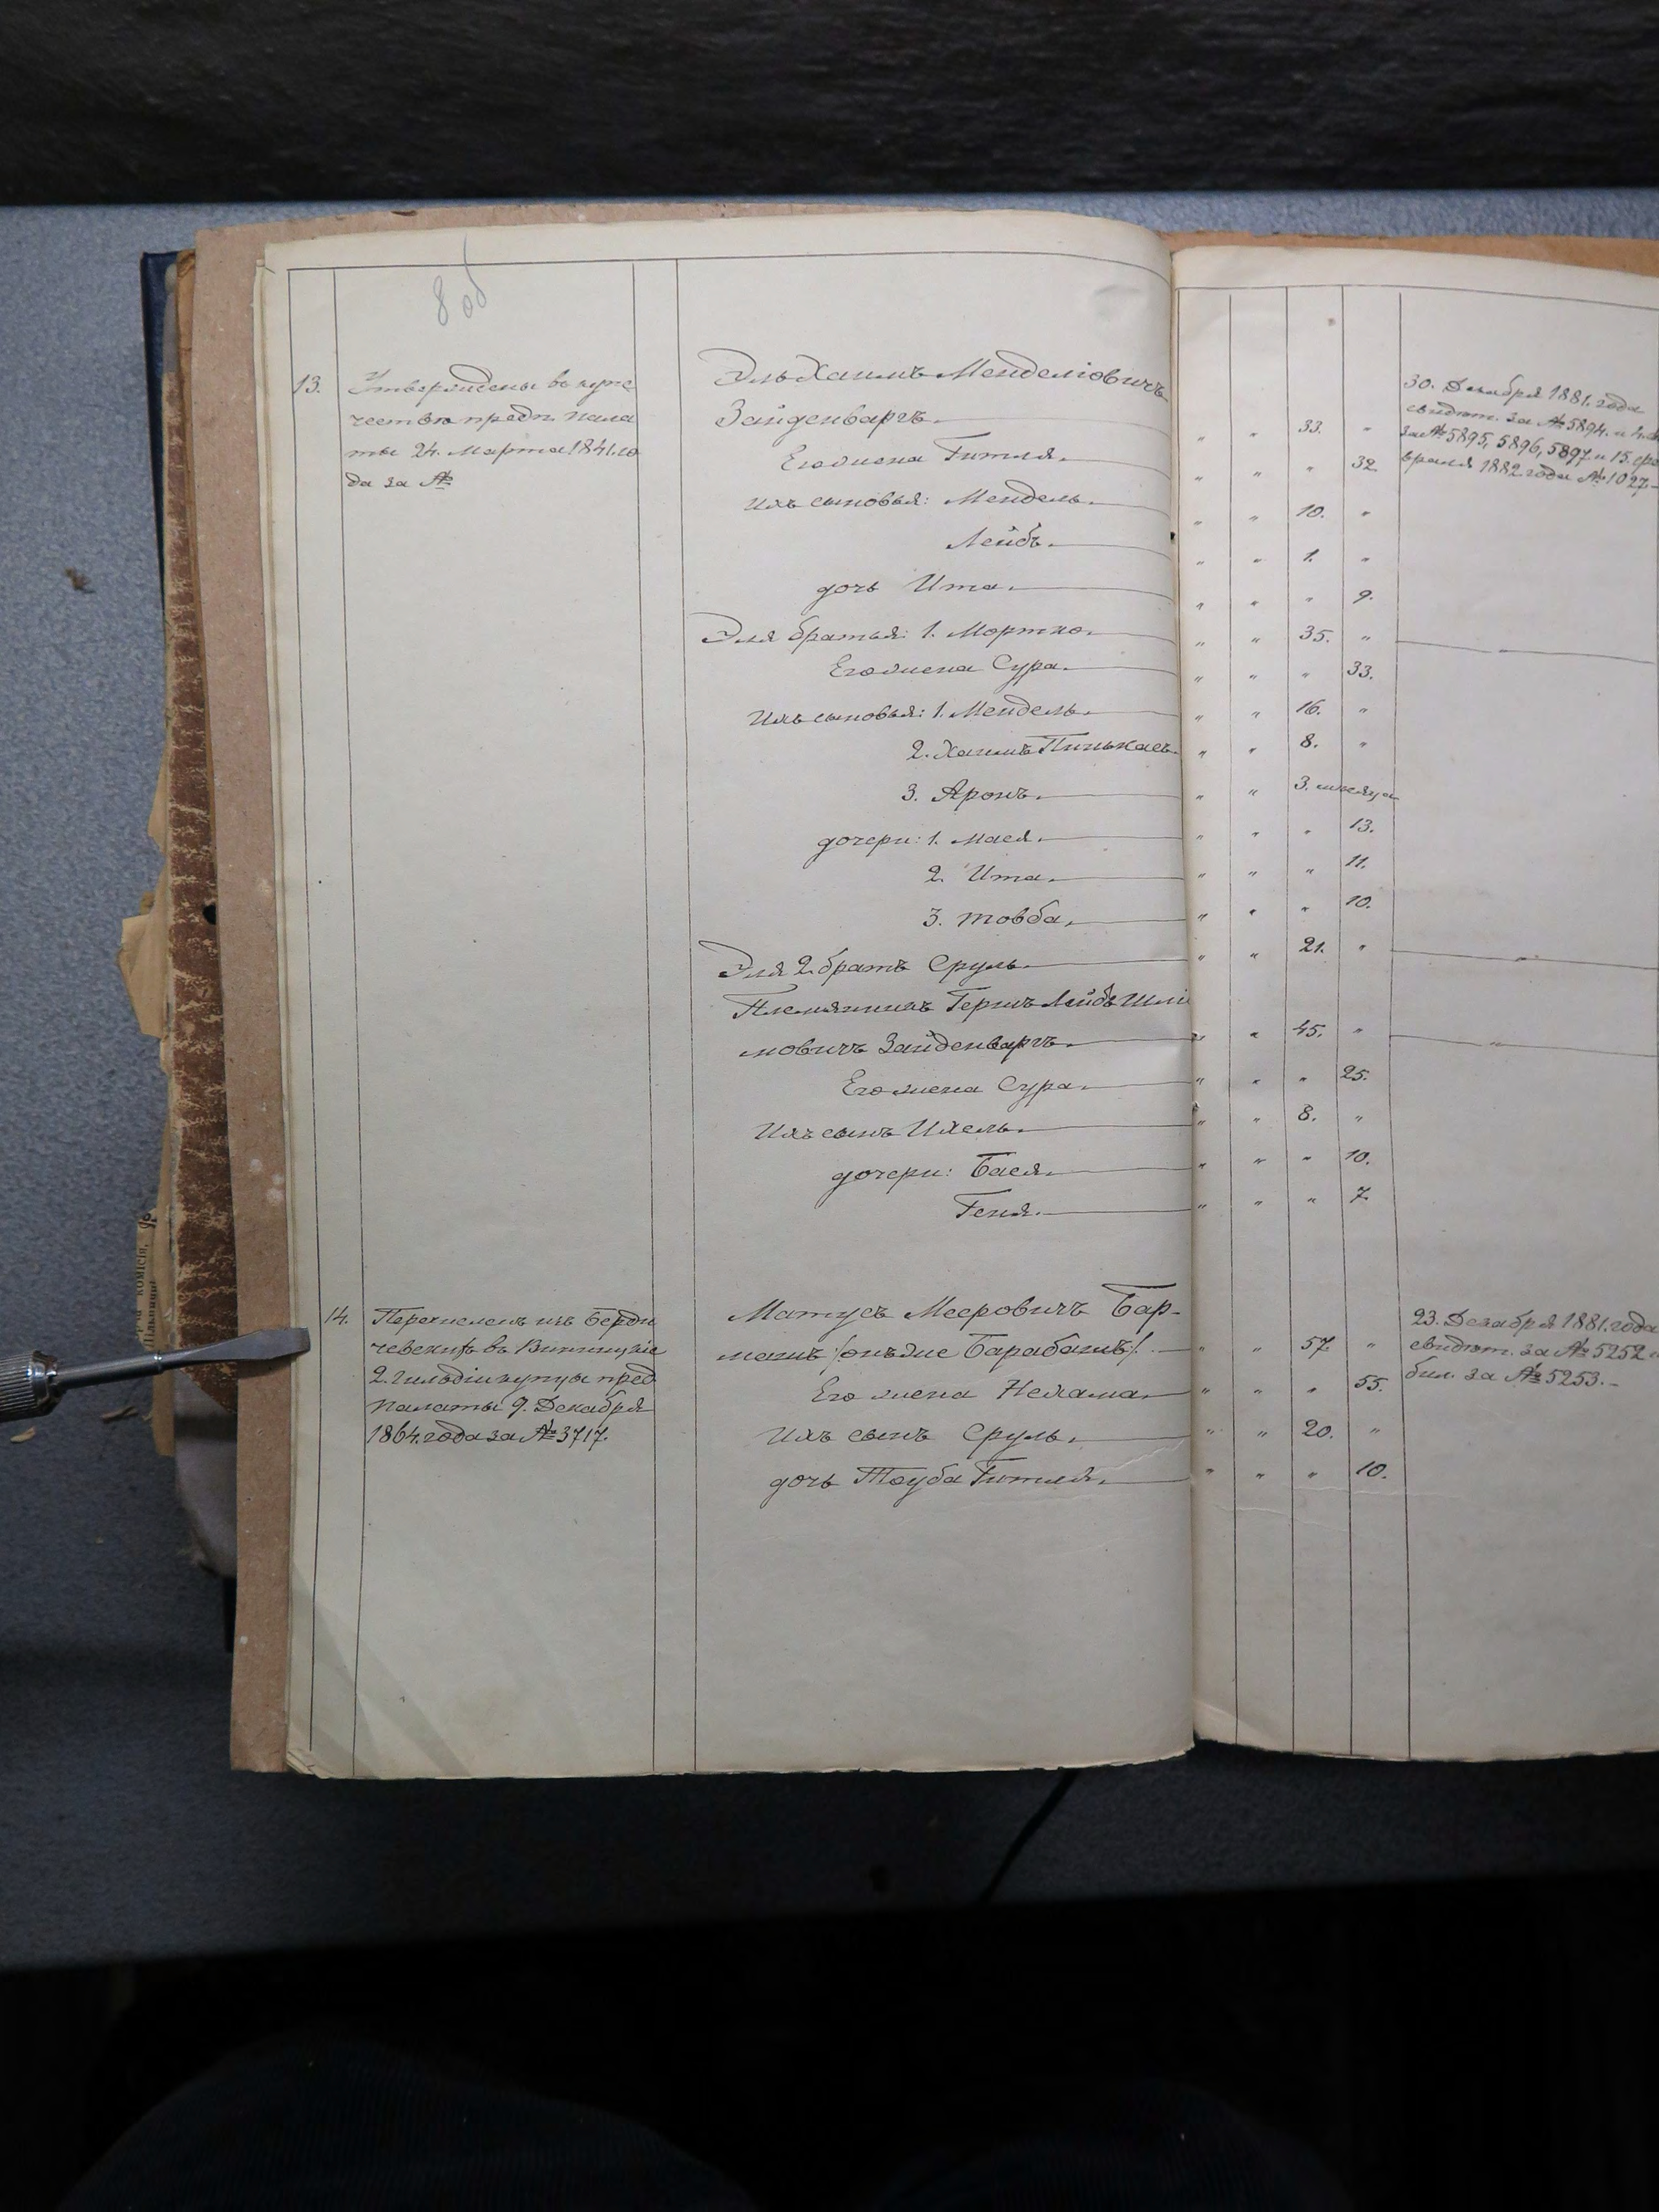 8 об
13. Утверждены въ купе
чество предп. пала
ты 24. Марта 1841. го
да за №
Эль Хаимъ Менделіовичъ
Зайденваргъ. " " 33. "
Его жена Гитля. " " " 32
Ихъ сыновья: Мендель. " " 10. "
Лейбъ. " " 1. "
дочь Ита. " " " 9.
Эля братья: 1. Мортко. " " 35. "
Его жена Сура. " " " 33.
Ихъ сыновья: 1. Мендель. " " 16. "
2. Хаимъ Пинькасъ. " " 8. "
3. Аронъ. " " 3. месяца
дочери: 1. Мася. " " " 13.
2. Ита. " " " 11.
3. товба. " " " 10.
Эля 2. братъ Сруль. " " 21. "
Племянникъ Гершъ Лейбъ Шлі
мовичъ Зайденваргъ. " " 45. "
Его жена Сура. " " " 25.
Ихъ сынъ Ихель. " " 8. "
дочери: Бася. " " " 10.
Геня. " " " 7.
30. Декабря 1881. года
свидѣт. за № 5894. и
за № 5895, 5896, 5897 и 15. фе
враля 1882 года № 1027.
14. Перечисленъ изъ Берди
чевскихъ въ Винницкіе
2. гильдіи купцы пред
палаты 9. Декабря
1864. года за № 3717.
Матусъ Мееровичъ Бар-
манъ /онъ же Барабанъ/. " " 57. "
Его жена Нехама. " " " 55.
Ихъ сынъ Сруль. " " 20. "
дочь Тауба Гитля. " " " 10.
23. Декабря 1881. года
свидѣт. за № 5252 и
бил. за № 5253.
комісія,